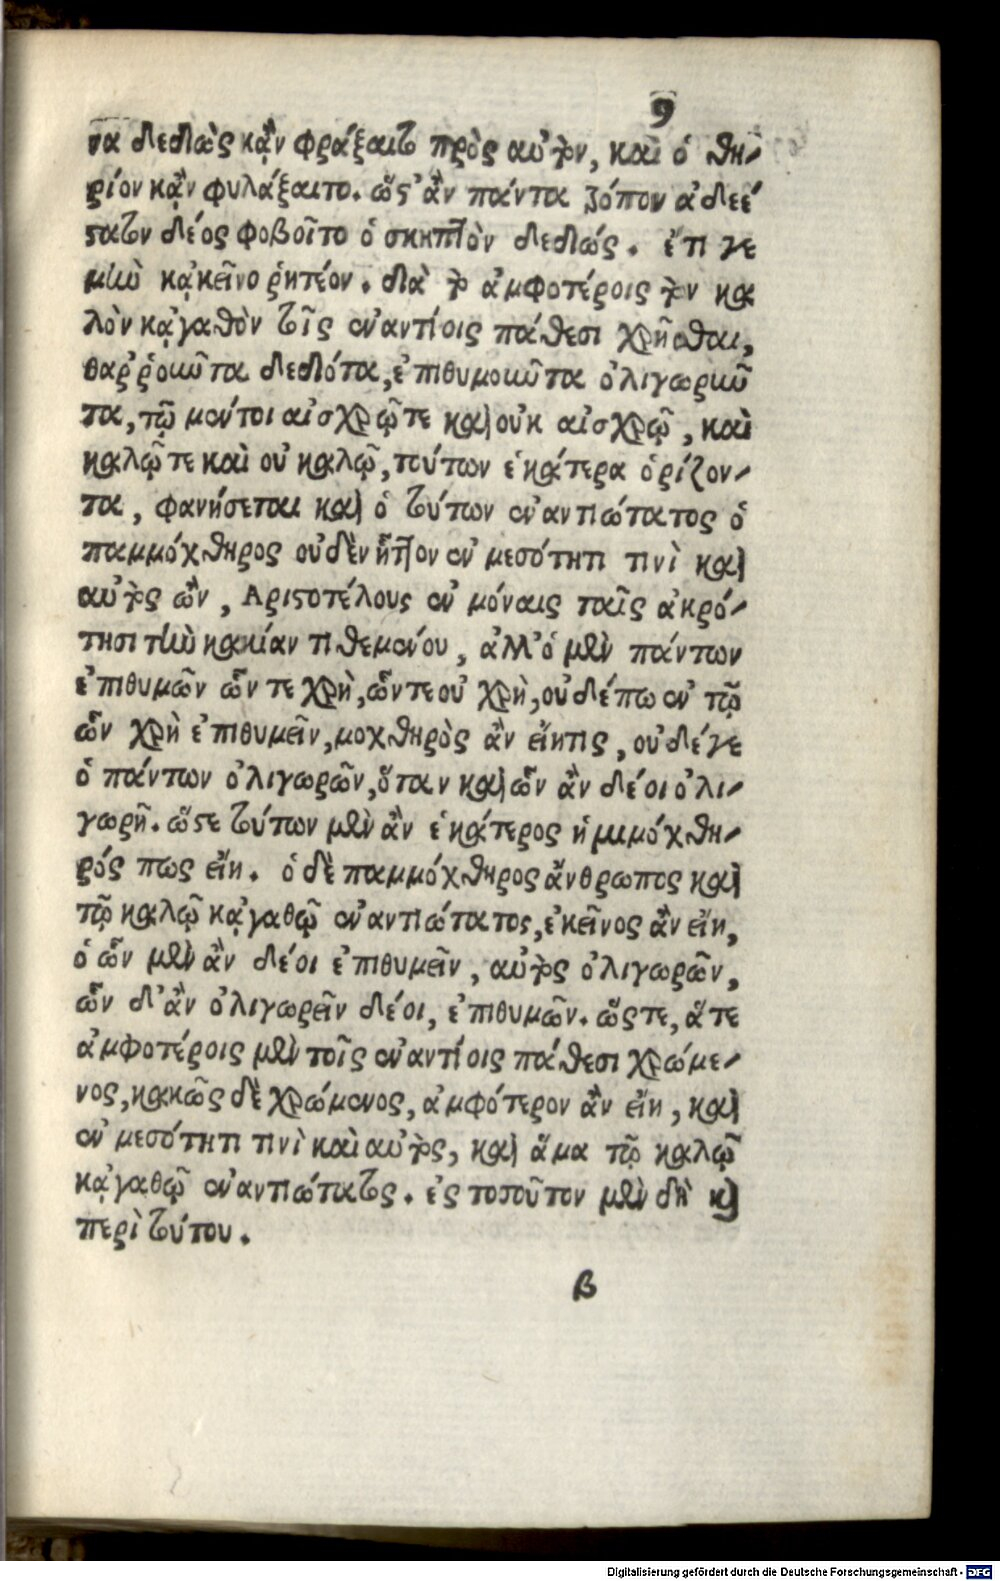 9
τα δεδιὼς κᾂν φράξαιτο πρὸς αὐτὸν, καὶ ὁ θη-
ρίον κᾂν φυλάξαιτο. ὥστ' ἂν πάντα τρόπον ἀδεέ
στατον δέος φοβοῖτο ὁ σκηπτὸν δεδιώς. ἔτι γε
μὴν κᾀκεῖνο ῥητέον. διὰ τὸ ἀμφοτέροις τὸν κα
λὸν κᾀγαθὸν τοῖς ἐναντίοις πάθεσι χρῆσθαι,
θαῤῥοῦντα δεδιότα, ἐπιθυμοῦντα ὀλιγωροῦν
τα, τῷ μέντοι αἰσχρῷ τε καὶ οὐκ αἰσχρῷ, καὶ
καλῷ τε καὶ οὐ καλῷ, τούτων ἑκάτερα ὁρίζον-
τα, φανήσεται καὶ ὁ τούτων ἐναντιώτατος ὁ
παμμόχθηρος οὐδὲν ἧττον ἐν μεσότητι τινὶ καὶ
αὐτὸς ὢν, Αριστοτέλους ἐν μόναις ταῖς ἀκρό-
τησι τὴν κακίαν τιθεμένου, ἀλλ' ὁ μὲν πάντων
ἐπιθυμῶν ὧν τε χρὴ, ὧν τε οὐ χρὴ, οὐδέπω ἐν τῷ
ὧν χρὴ ἐπιθυμεῖν, μοχθηρὸς ἂν εἴη τις, οὐδέ γε
ὁ πάντων ὀλιγωρῶν, ὅταν καὶ ὧν ἂν δέοι ὀλι-
γωρῆ. ὥστε τούτων μὲν ἂν ἑκάτερος ἡμιμόχθη-
ρός πως εἴη. ὁ δὲ παμμόχθηρος ἄνθρωπος καὶ
τῷ καλῷ κᾀγαθῷ ἐναντιώτατος, ἐκεῖνος ἂν εἴη,
ὁ ὧν μὲν ἂν δέοι ἐπιθυμεῖν, αὐτὸς ὀλιγωρῶν,
ὧν δ' ἂν ὀλιγωρεῖν δέοι, ἐπιθυμῶν. ὥστε, ἅτε
ἀμφοτέροις μὲν τοῖς ἐναντίοις πάθεσι χρώμε-
νος, κακῶς δὲ χρώμενος, ἀμφότερον ἂν εἴη, καὶ
ἐν μεσότητι τινὶ καὶ αὐτὸς, καὶ ἅμα τῷ καλῷ
κᾀγαθῷ ἐναντιώτατος. ἐς τοσοῦτον μὲν δὴ καὶ
περὶ τούτου.
β
Digitalisierung gefördert durch die Deutsche Forschungsgemeinschaft - DFG